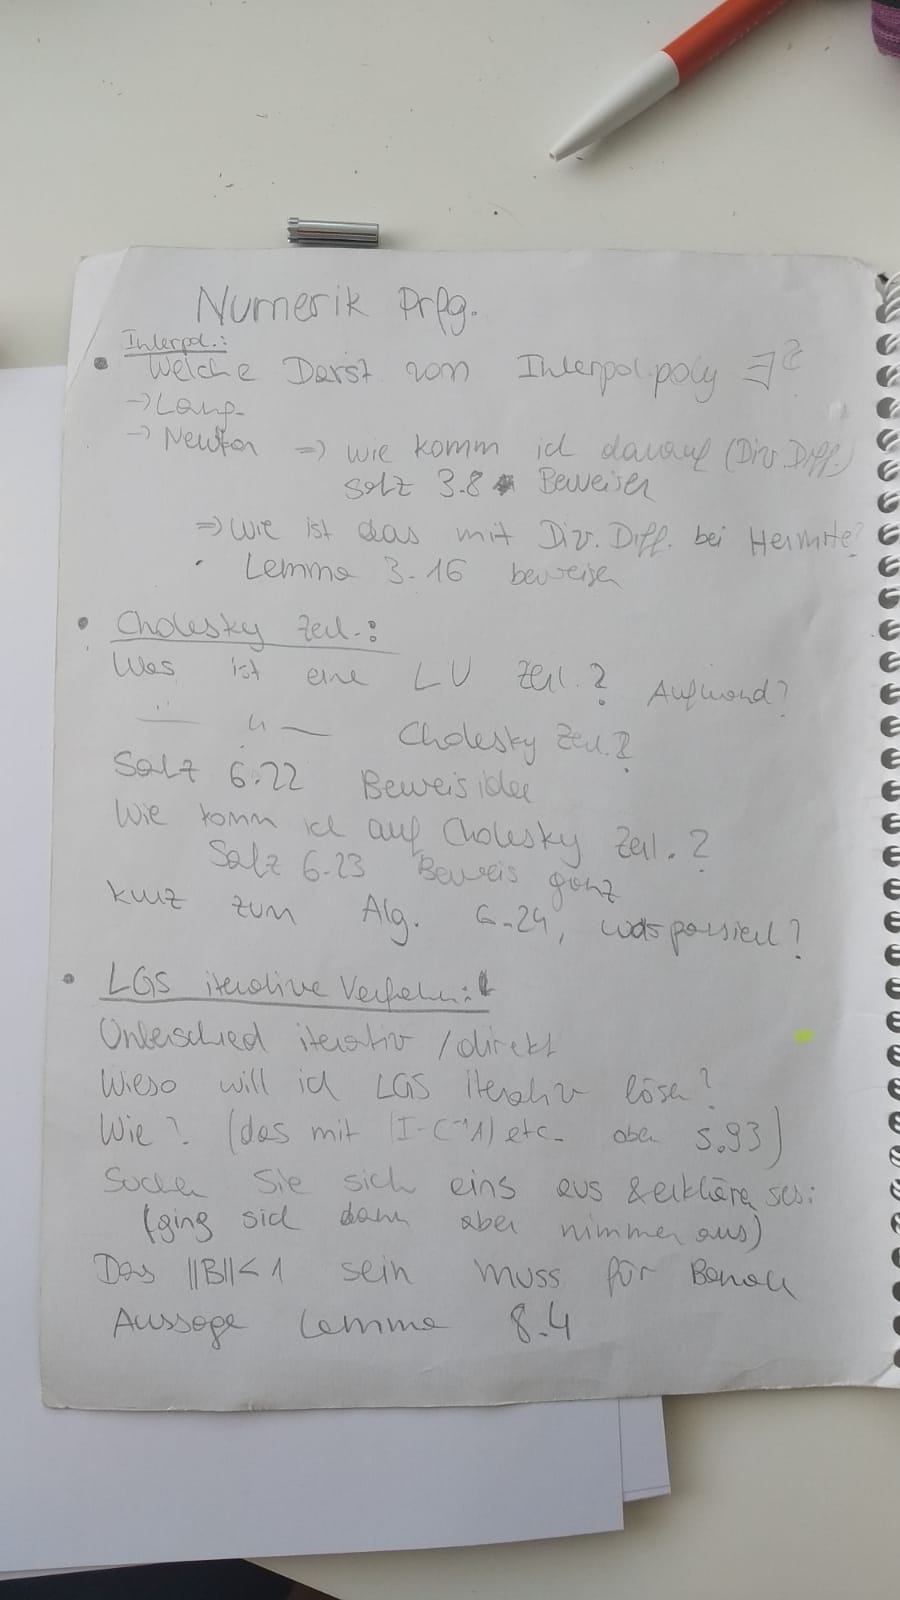 Numerik Prfg.
Interpol.:
• Welche Darst von Interpol.poly ∃?
-> Lang.
-> Newton => wie komm ich darauf (Div. Diff.)
Satz 3.8 Beweisen
=> Wie ist das mit Div. Diff. bei Hermite?
· Lemma 3.16 beweisen
• Cholesky Zerl.:
Was ist eine LU Zerl.? Aufwand?
—"— —"— Cholesky Zerl.?
Satz 6.22 Beweisidee
Wie komm ich auf Cholesky Zerl.?
Satz 6.23 Beweis ganz
kurz zum Alg. 6.24, was passiert?
• LGS iterative Verfahren:
Unterschied iterativ / direkt
Wieso will ich LGS iterativ lösen?
Wie? (das mit (I-C⁻¹A) etc. oben S.93)
Suchen Sie sich eins aus & erklären ses:
(ging sich dann aber nimmer aus)
Das ||B||<1 sein muss für Banach
Aussage Lemma 8.4